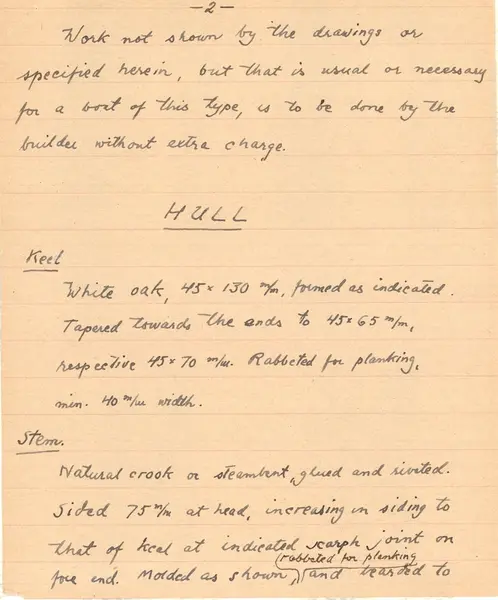 -2-
Work not shown by the drawings or
specified herein, but that is usual or necessary
for a boat of this type, is to be done by the
builder without extra charge.
HULL
Keel
White oak, 45 x 130 m/m, formed as indicated.
Tapered towards the ends to 45 x 65 m/m,
respective 45 x 70 m/m. Rabbeted for planking,
min. 40 m/m width.
Stem.
Natural crook or steambent, glued and riveted.
Sided 75 m/m at head, increasing in siding to
that of keel at indicated scarph joint on
(rabbeted for planking
fore end. Molded as shown, and bearded to